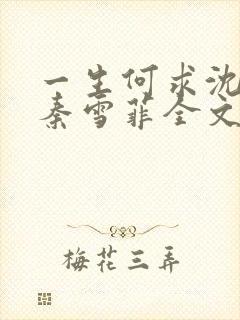 一生何求沈
秦雪菲全文
梅花三弄